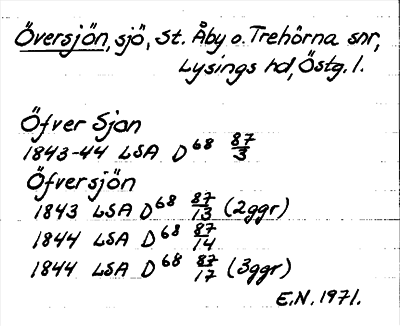 Översjön, sjö, St. Åby o. Trehörna snr,
Lysings hd, Östg. l.
Öfver Sjön
1843-44 LSA D68 87/3
Öfversjön
1843 LSA D68 87/13 (2ggr)
1844 LSA D68 87/14
1844 LSA D68 87/17 (3ggr)
E.N. 1971.